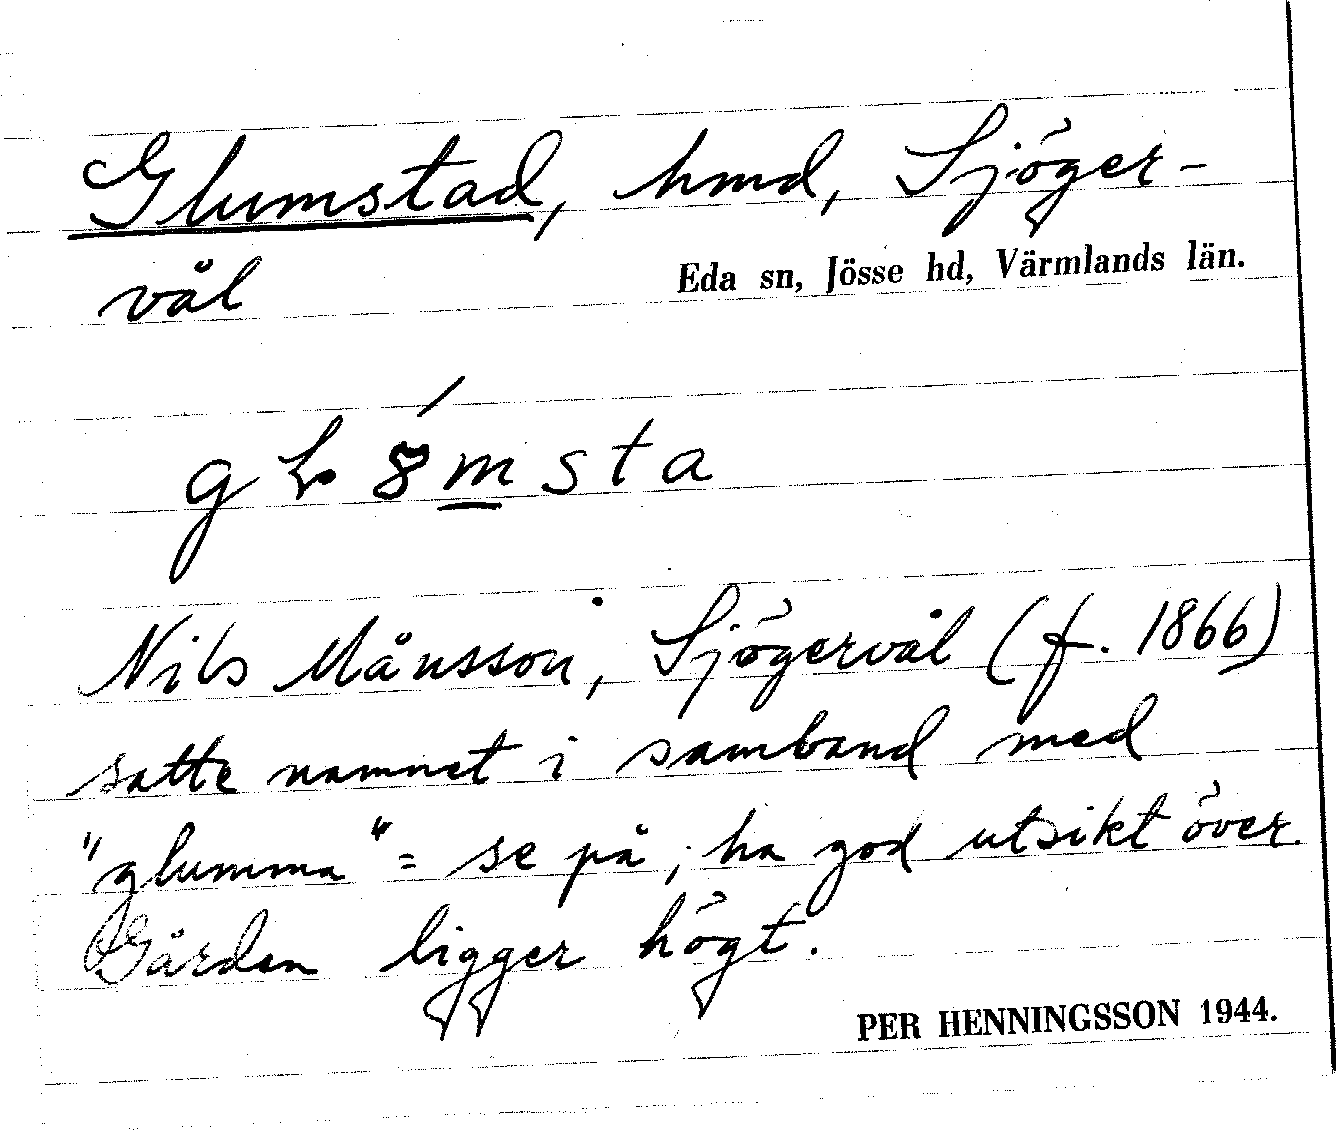 Glumstad, hmd, Sjöger-
vål
Eda sn, Jösse hd, Värmlands län.
Nils Månsson, Sjögervål (f. 1866)
satte namnet i samband med
"glumma" = se på, ha god utsikt över.
Gården ligger högt.
PER HENNINGSSON 1944.